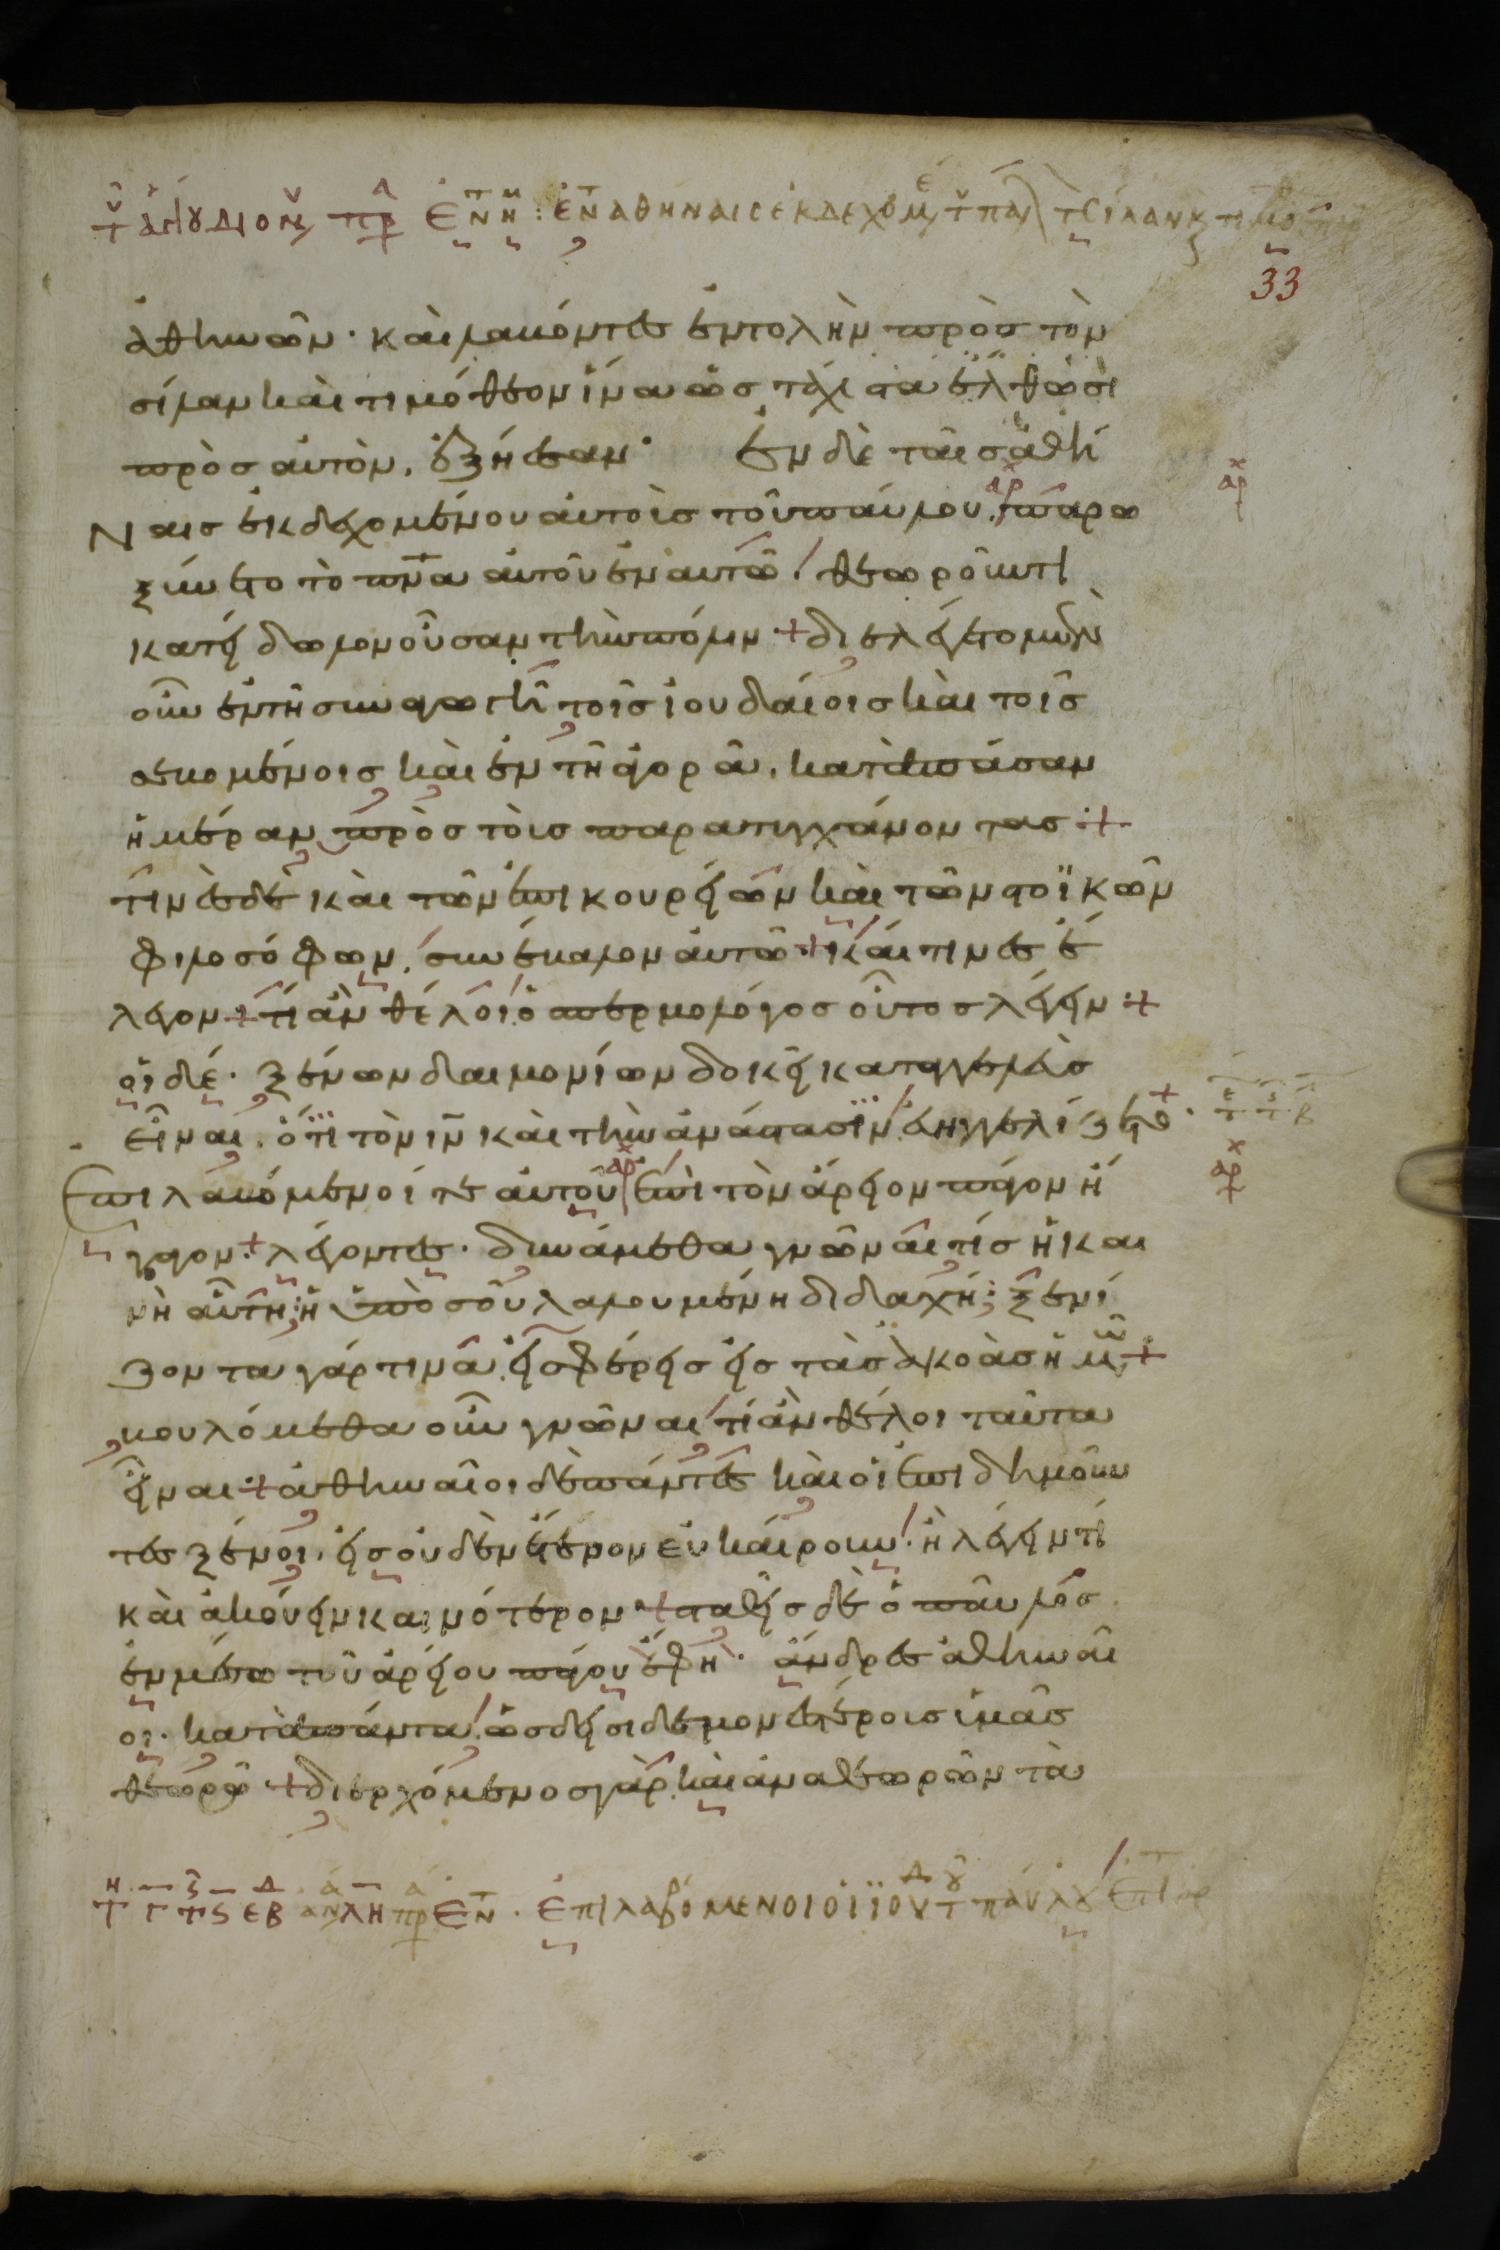 ἐν ἀθήναις ἐκδεχομ
33
ἀθηνῶν· καὶ λαβόντες ἐντολὴν πρὸς τὸν
σίλαν καὶ τιμόθεον ἵνα ὡς τάχιστα ἔλθωσι
πρὸς αὐτὸν, ἐξήεσαν· ἐν δὲ ταῖς ἀθή
αρχ
ναις ἐκδεχομένου αὐτοὺς τοῦ παύλου, παρω
ξύνετο τὸ πνα αὐτοῦ ἐν αὐτῶ· θεωροῦντι
κατείδωλον οὖσαν τὴν πόλιν + διελέγετο μὲν
οὖν ἐν τῆ συναγωγῆ τοῖς ἰουδαίοις καὶ τοῖς
σεβομένοις καὶ ἐν τῆ ἀγορᾶ, κατὰ πᾶσαν
ἡμέραν πρὸς τοὺς παρατυγχάνοντας +
τινὲς δὲ καὶ τῶν ἐπικουρείων καὶ τῶν στοϊκῶν
φιλοσόφων, συνέβαλον αὐτῶ + καί τινες ἔ
λεγον + τί ἂν θέλοι ὁ σπερμολόγος οὗτος λέγειν +
οἱ δέ· ξένων δαιμονίων δοκεῖ καταγγελεὺς
εἶναι, ὅτι τὸν ιν καὶ τὴν ἀνάστασιν εὐηγγελίζετο·
αρχ
ἐπιλαβόμενοί τε αὐτοῦ ἐπὶ τὸν ἄρειον πάγον ἤ
γαγον + λέγοντες· δυνάμεθα γνῶναι τίς ἡ και
νὴ αὕτη ἡ ὑπὸ σοῦ λαλουμένη διδαχή; ξενί
ζοντα γάρ τινα εἰσφέρεις εἰς τὰς ἀκοὰς ἡμῶν +
βουλόμεθα οὖν γνῶναι τί ἂν θέλοι ταῦτα
εἶναι + ἀθηναῖοι δὲ πάντες καὶ οἱ ἐπιδημοῦν
τες ξένοι, εἰς οὐδὲν ἕτερον εὐκαίρουν· ἢ λέγειν τί
καὶ ἀκούειν καινότερον + σταθεὶς δὲ ὁ παῦλος
ἐν μέσω τοῦ ἀρείου πάγου ἔφη· ἄνδρες ἀθηναῖ
οι· κατὰ πάντα ὡς δεισιδαιμονεστέρους ὑμᾶς
θεωρῶ + διερχόμενος γὰρ καὶ ἀναθεωρῶν τὰ
ἐπιλαβόμενοι οἱ ἰουδ τ παύλου